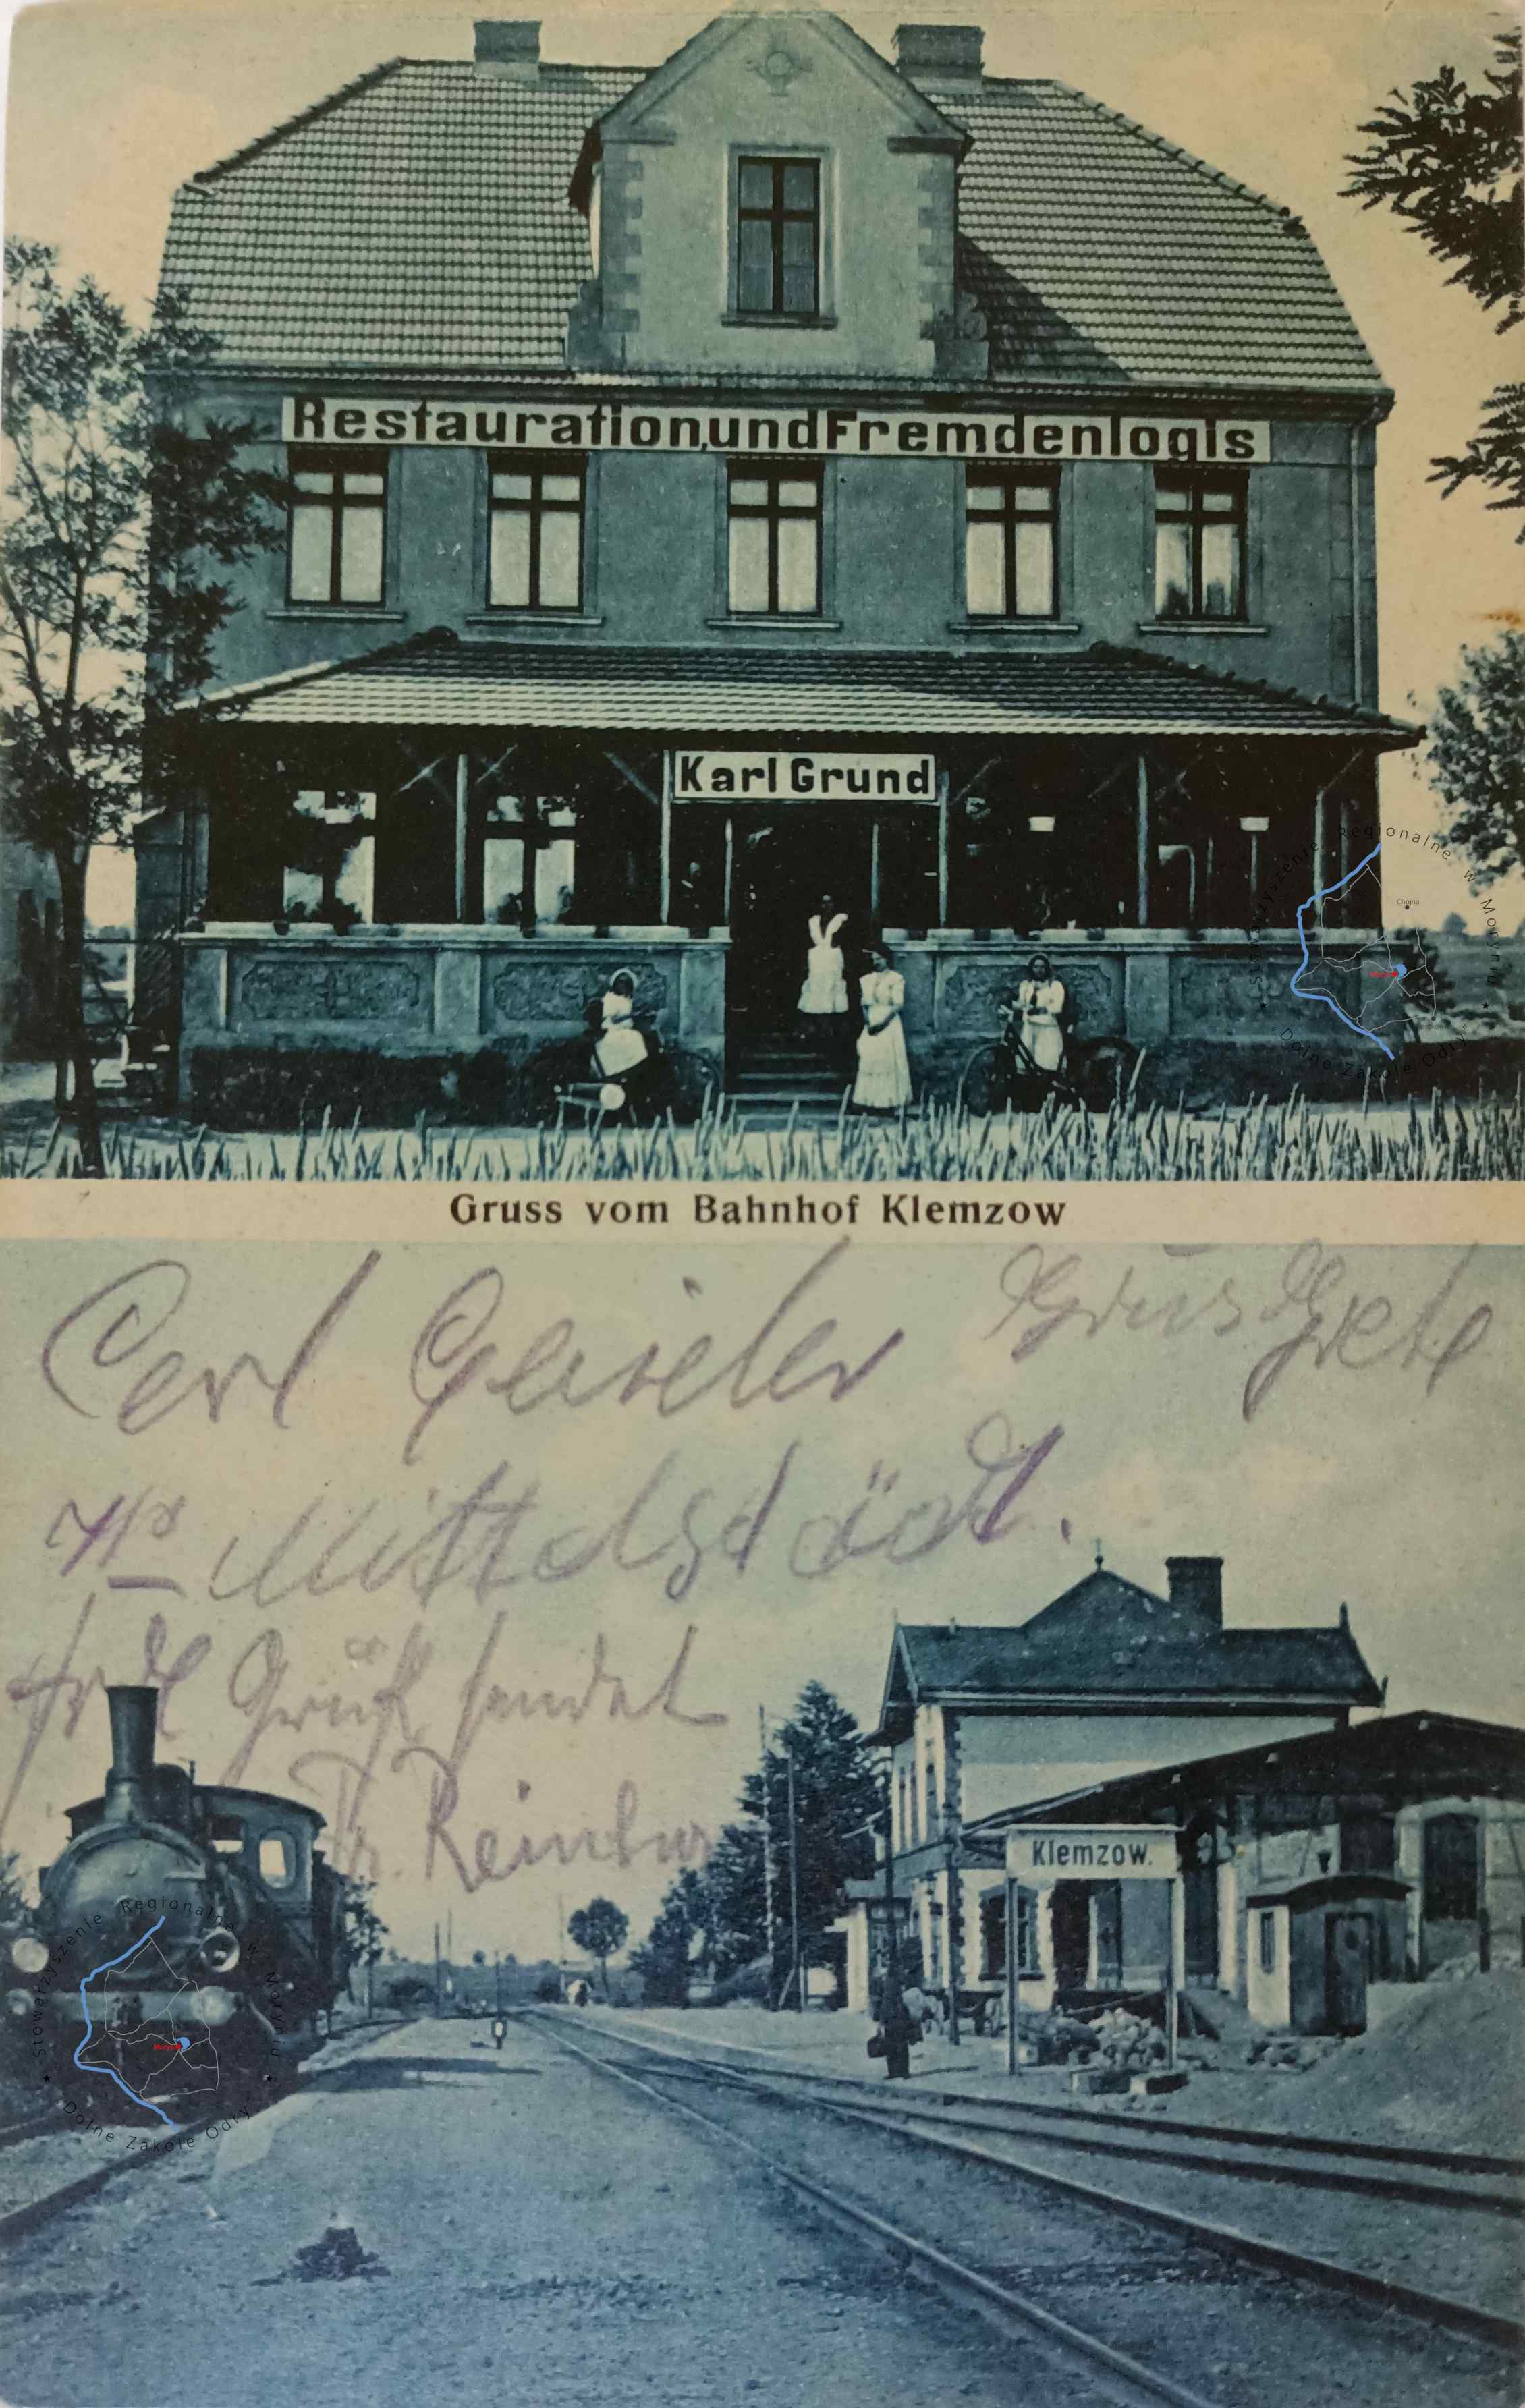 Restauration,undFremdenlogis
Karl Grund
Stowarzyszenie Regionalne w Moryniu
Chojna
Moryń
* Dolne Zakole Odry *
Gruss vom Bahnhof Klemzow
Carl Geiseler Grus Grete
Mittelstädt.
Gruß sendet
Klemzow.
Stowarzyszenie Regionalne w Moryniu
Moryń
* Dolne Zakole Odry *